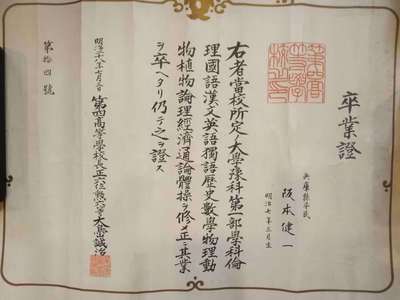 卒業證
兵庫縣平民
阪本健一
明治七年三月生
右者當校所定ノ大學豫科第一部學科倫
理國語漢文英語獨語歷史數學物理動
物植物論理經濟通論體操ヲ修メ正ニ其業
ヲ卒ヘタリ仍テ之ヲ證ス
明治廿八年七月
第四高等學校長正六位勲六等大島誠治
第拾四號